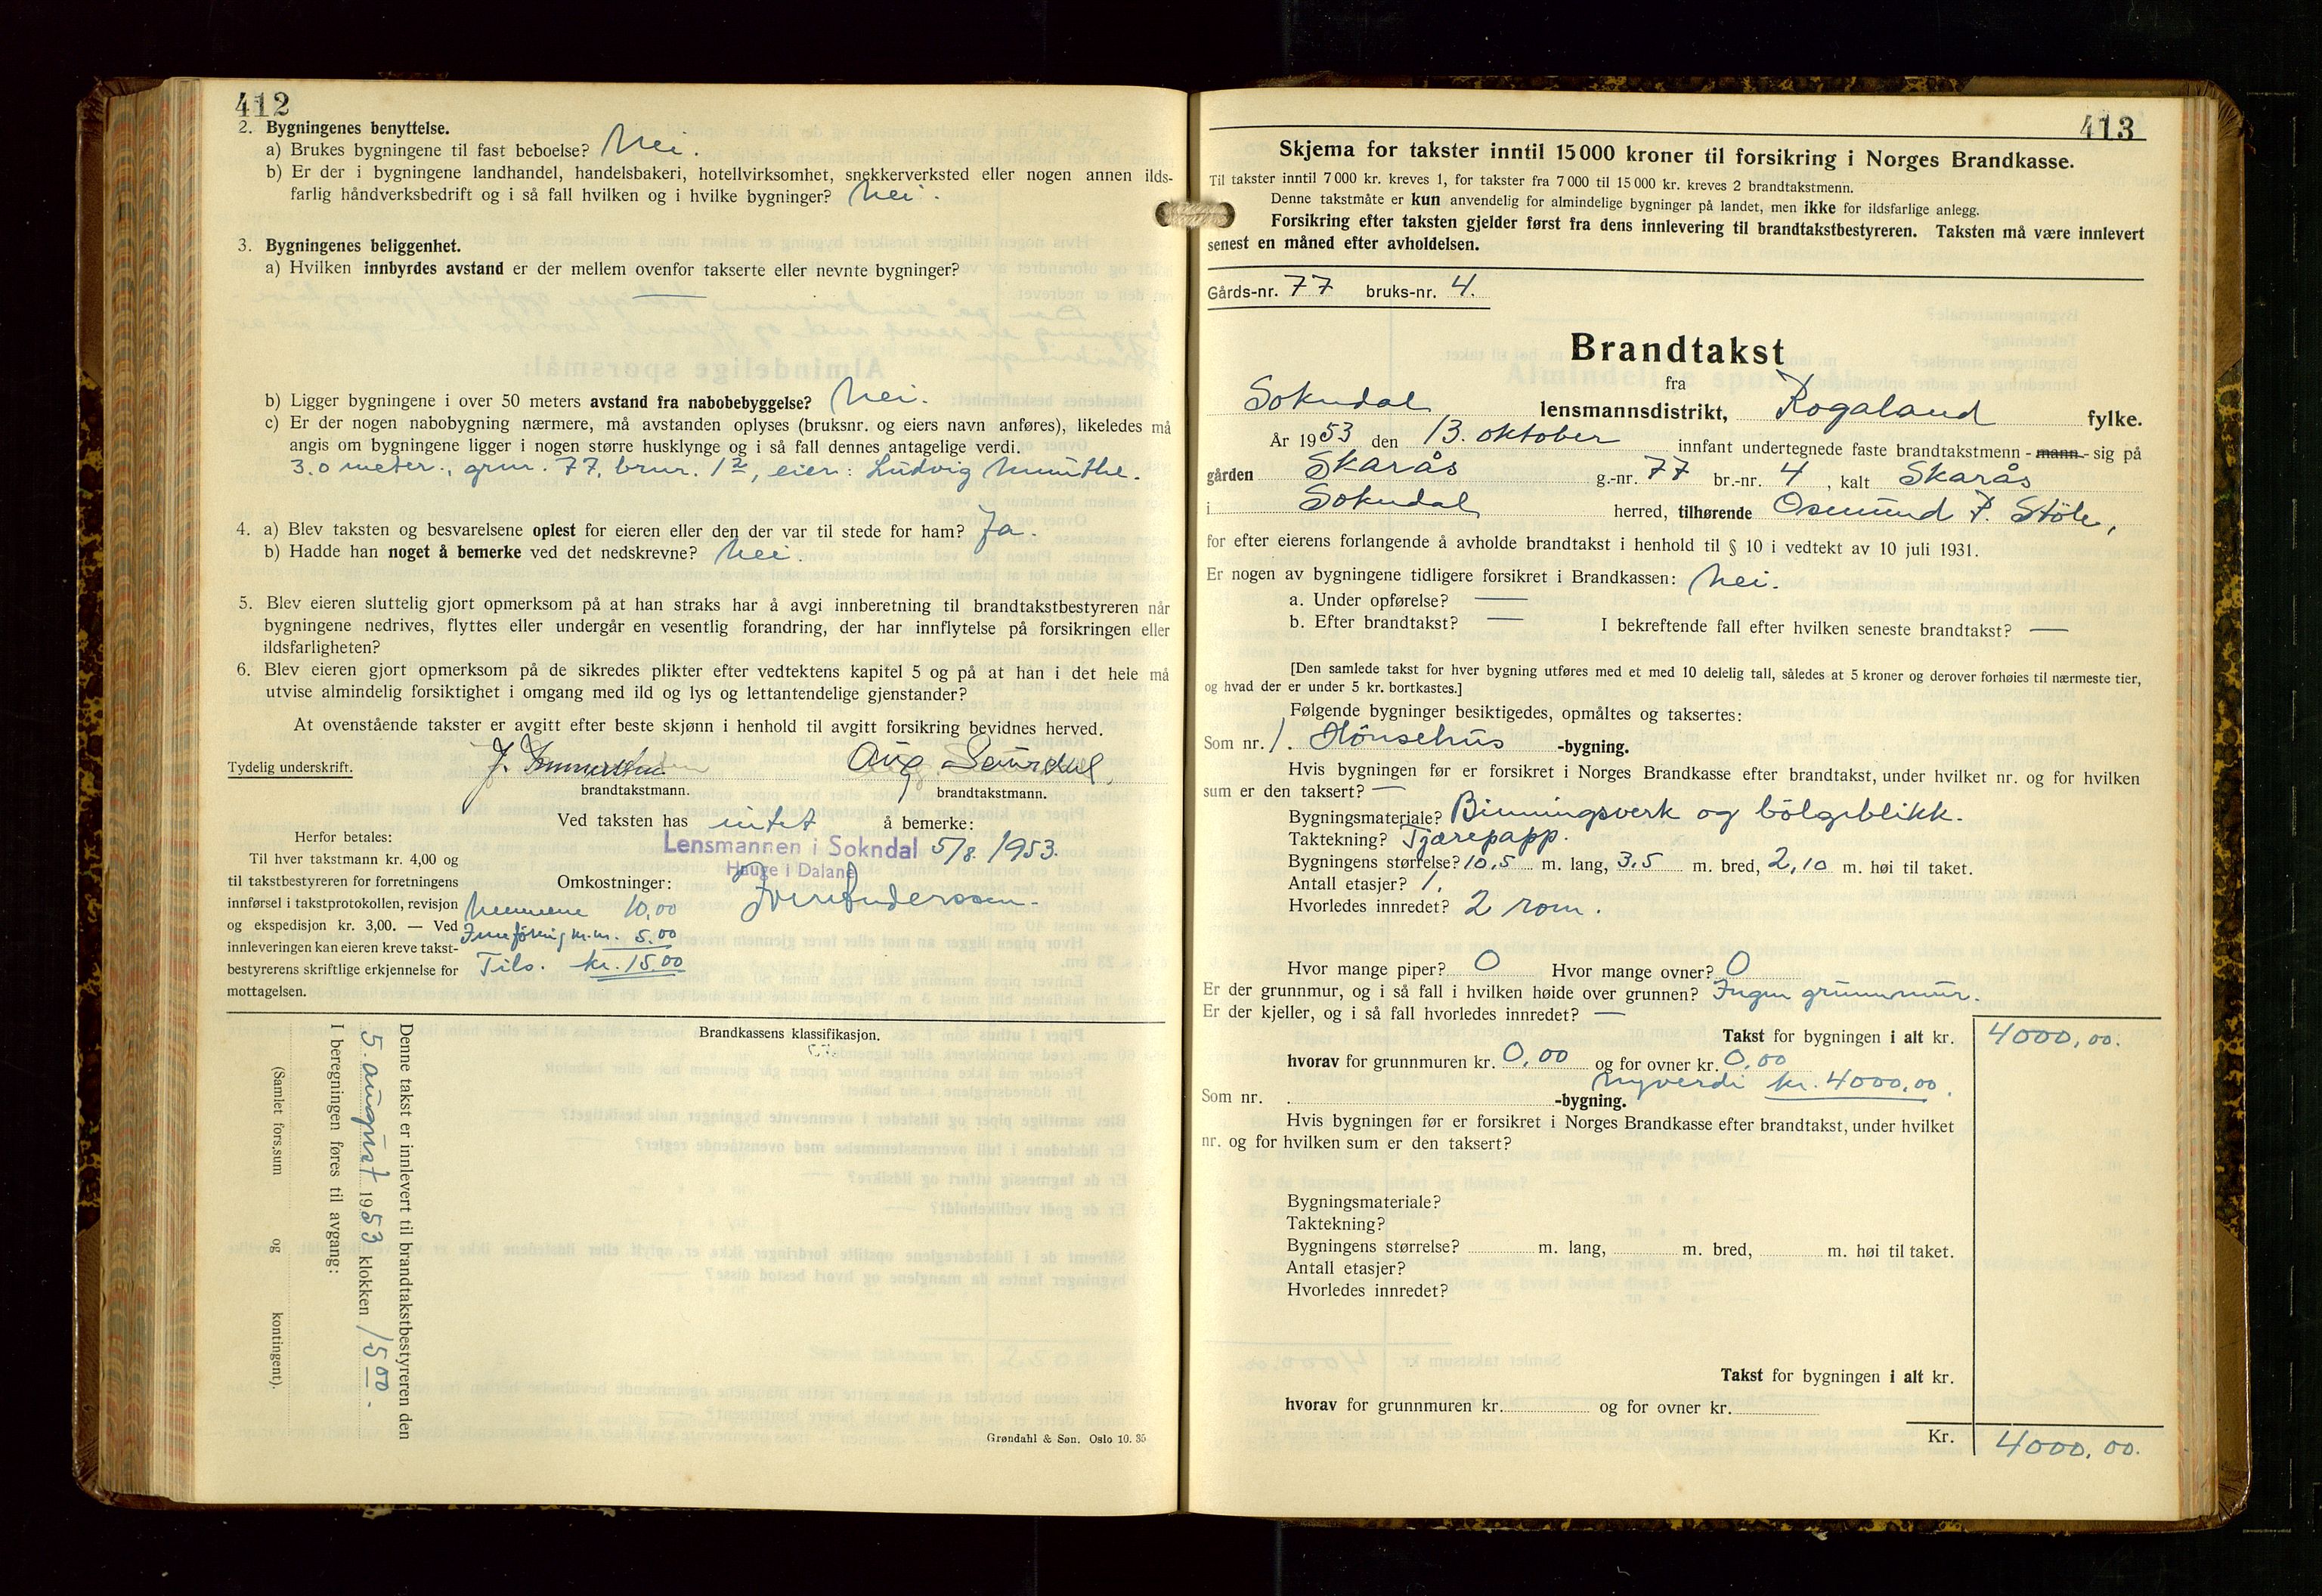 412
2. Bygningenes benyttelse.
a) Brukes bygningene til fast beboelse? Nei.
b) Er der i bygningene landhandel, handelsbakeri, hotellvirksomhet, snekkerverksted eller nogen annen ilds-
farlig håndverksbedrift og i så fall hvilken og i hvilke bygninger? Nei.
3. Bygningenes beliggenhet.
a) Hvilken innbyrdes avstand er der mellem ovenfor takserte eller nevnte bygninger?
—
b) Ligger bygningene i over 50 meters avstand fra nabobebyggelse? Nei.
c) Er der nogen nabobygning nærmere, må avstanden oplyses (bruksnr. og eiers navn anføres), likeledes må
angis om bygningene ligger i nogen større husklynge og i så fall dennes antagelige verdi.
3.0 meter., grnr. 77, brnr. 12, eier: Ludvig Munthe.
4. a) Blev taksten og besvarelsene oplest for eieren eller den der var til stede for ham? Ja.
b) Hadde han noget å bemerke ved det nedskrevne? Nei.
5. Blev eieren sluttelig gjort opmerksom på at han straks har å avgi innberetning til brandtakstbestyreren når
bygningene nedrives, flyttes eller undergår en vesentlig forandring, der har innflytelse på forsikringen eller
ildsfarligheten?
6. Blev eieren gjort opmerksom på de sikredes plikter efter vedtektens kapitel 5 og på at han i det hele må
utvise almindelig forsiktighet i omgang med ild og lys og lettantendelige gjenstander?
At ovenstående takster er avgitt efter beste skjønn i henhold til avgitt forsikring bevidnes herved.
Tydelig underskrift. J. Aug.
brandtakstmann. brandtakstmann.
Ved taksten has intet å bemerke:
Lensmannen i Sokndal 5/8. 1953.
Hauge i Dalane
Herfor betales:
Til hver takstmann kr. 4,00 og
til takstbestyreren for forretningens
innførsel i takstprotokollen, revisjon
og ekspedisjon kr. 3,00. — Ved
innleveringen kan eieren kreve takst-
bestyrerens skriftlige erkjennelse for
mottagelsen.
Omkostninger:
Mennene 10,00
Innføring m.m. 5.00
Tils. kr. 15.00
Brandkassens klassifikasjon.
Denne takst er innlevert til brandtakstbestyreren den
5. august 1953 klokken 15 00.
I beregningen føres til avgang:
(Samlet fors.sum og kontingent).
Grøndahl & Søn. Oslo 10. 35
413
Skjema for takster inntil 15 000 kroner til forsikring i Norges Brandkasse.
Til takster inntil 7 000 kr. kreves 1, for takster fra 7 000 til 15 000 kr. kreves 2 brandtakstmenn.
Denne takstmåte er kun anvendelig for almindelige bygninger på landet, men ikke for ildsfarlige anlegg.
Forsikring efter taksten gjelder først fra dens innlevering til brandtakstbestyreren. Taksten må være innlevert
senest en måned efter avholdelsen.
Gårds-nr. 77 bruks-nr. 4.
Brandtakst
fra
Sokndal lensmannsdistrikt, Rogaland fylke.
År 1953 den 13. oktober innfant undertegnede faste brandtakstmenn - mann - sig på
gården Skarås g.-nr. 77 br.-nr. 4, kalt Skarås
i Sokndal herred, tilhørende Osmund P. Støle,
for efter eierens forlangende å avholde brandtakst i henhold til § 10 i vedtekt av 10 juli 1931.
Er nogen av bygningene tidligere forsikret i Brandkassen: Nei.
a. Under opførelse? —
b. Efter brandtakst? — I bekreftende fall efter hvilken seneste brandtakst? —
[Den samlede takst for hver bygning utføres med et med 10 delelig tall, således at 5 kroner og derover forhøies til nærmeste tier,
og hvad der er under 5 kr. bortkastes.]
Følgende bygninger besiktigedes, opmåltes og taksertes:
Som nr. 1. Hönsehus -bygning.
Hvis bygningen før er forsikret i Norges Brandkasse efter brandtakst, under hvilket nr. og for hvilken
sum er den taksert? —
Bygningsmateriale? Binningsverk og bölgeblikk.
Taktekning? Tjærepapp.
Bygningens størrelse? 10,5 m. lang, 3,5 m. bred, 2,10 m. høi til taket.
Antall etasjer? 1.
Hvorledes innredet? 2 rom.
Hvor mange piper? 0 Hvor mange ovner? 0
Er der grunnmur, og i så fall i hvilken høide over grunnen? Ingen grunnmur.
Er der kjeller, og i så fall hvorledes innredet? —
Takst for bygningen i alt kr. 4000,00.
hvorav for grunnmuren kr. 0,00 og for ovner kr. 0,00
Nyverdi kr. 4000,00.
Som nr. -bygning.
Hvis bygningen før er forsikret i Norges Brandkasse efter brandtakst, under hvilket
nr. og for hvilken sum er den taksert?
Bygningsmateriale?
Taktekning?
Bygningens størrelse? m. lang, m. bred, m. høi til taket.
Antall etasjer?
Hvorledes innredet?
Takst for bygningen i alt kr.
hvorav for grunnmuren kr. og for ovner kr.
Kr. 4000,00.